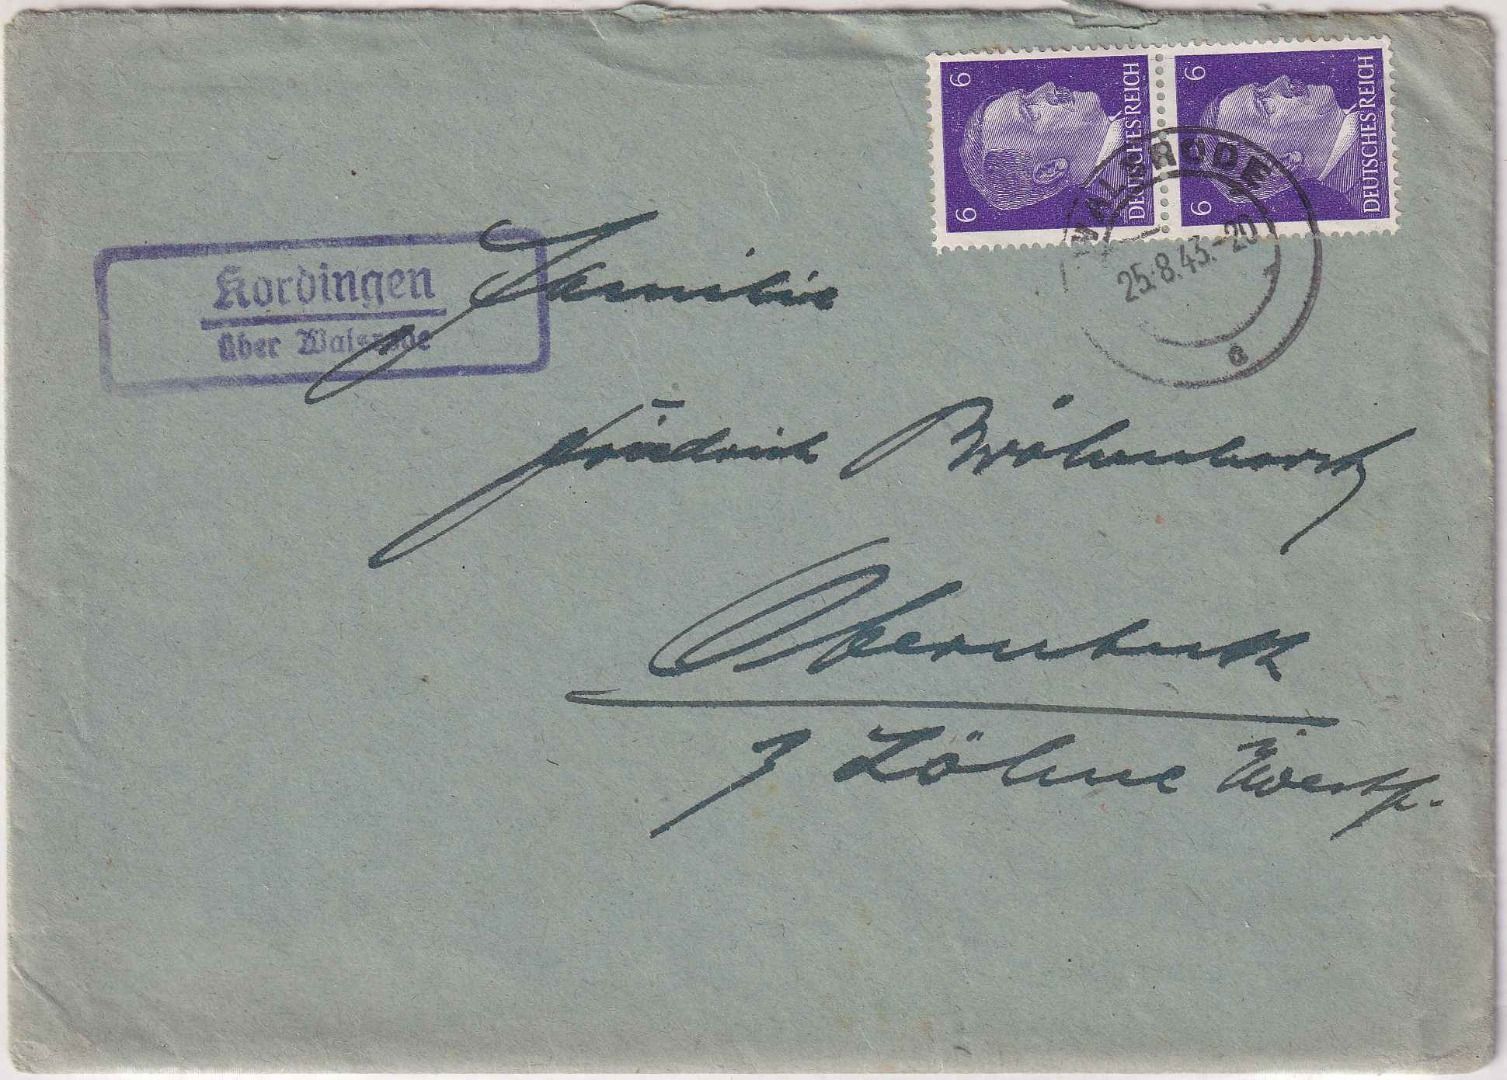 6 6
DEUTSCHES REICH
6 6
DEUTSCHES REICH
WALSRODE
25.8.43.-20
a
Kordingen
über Walsrode
Familie
Friedrich
Obernbeck
Löhne Westf.